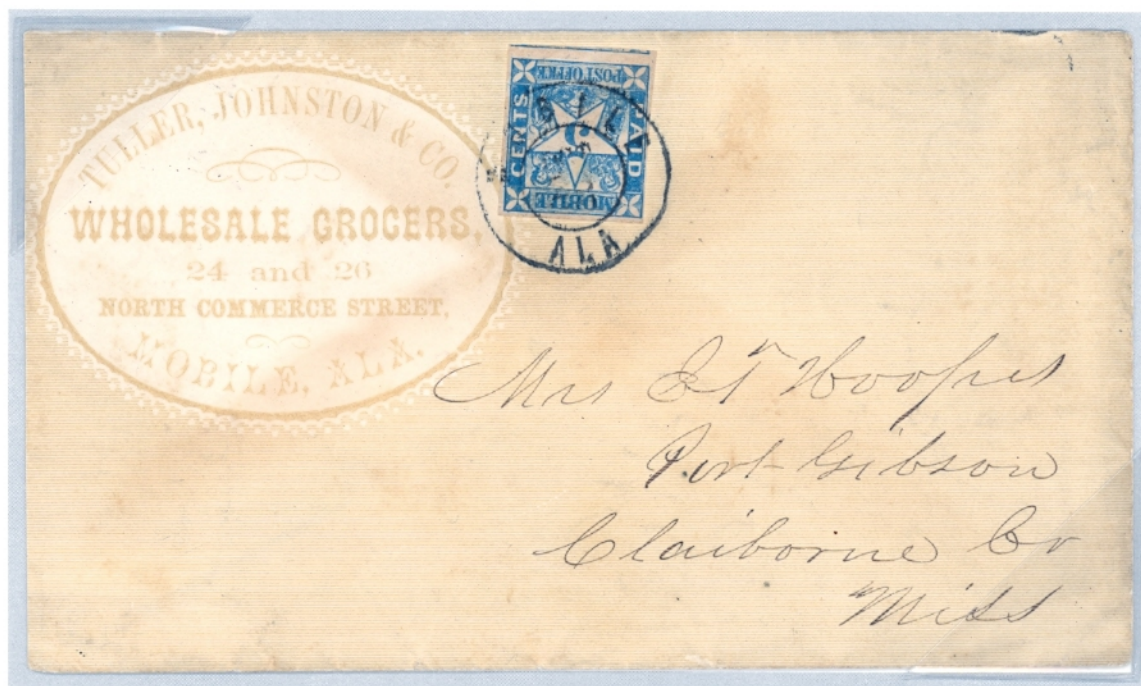 TULLER, JOHNSTON & CO.
WHOLESALE GROCERS,
24 and 26
NORTH COMMERCE STREET,
MOBILE, ALA.
POST OFFICE
CENTS
5
PAID
MOBILE
ALA
Mrs
Port Gibson
Claiborne Co
Miss